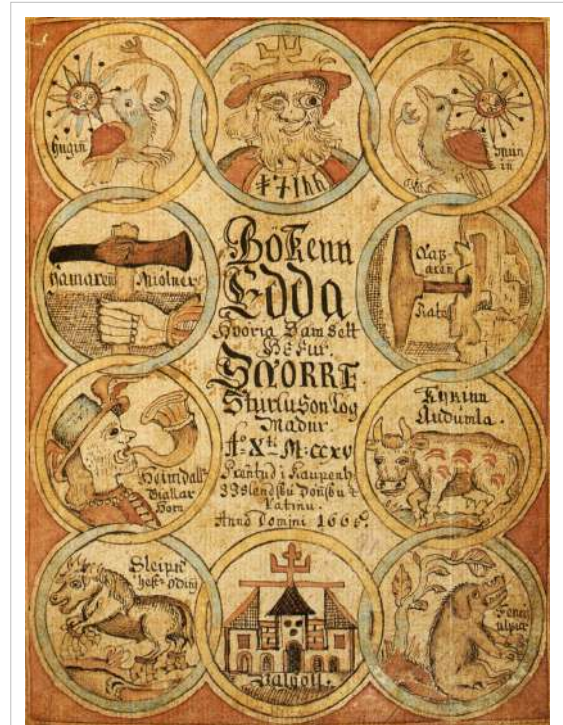 hugin
mun
in
Hamaren Miolner
Bökenn
Edda
Hvoria Samsett
Hefur.
Snorre.
Sturluson Log
Madur.
Aº Xti M:ccxv
Prentud i Kaupenh
Jslendsku Donsku &
Latinu.
Anno Domini 1665.
Heimdall
Giallar
Horn
Kyrinn
Audumla.
Sleipn
hest Odins
Valholl.